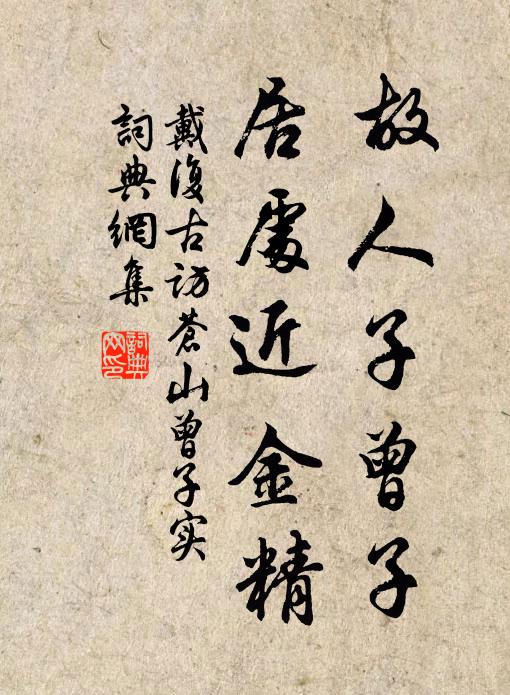 故人子曾子
居處近金精
戴復古訪蒼山曾子实
詞典網集
詞典網印